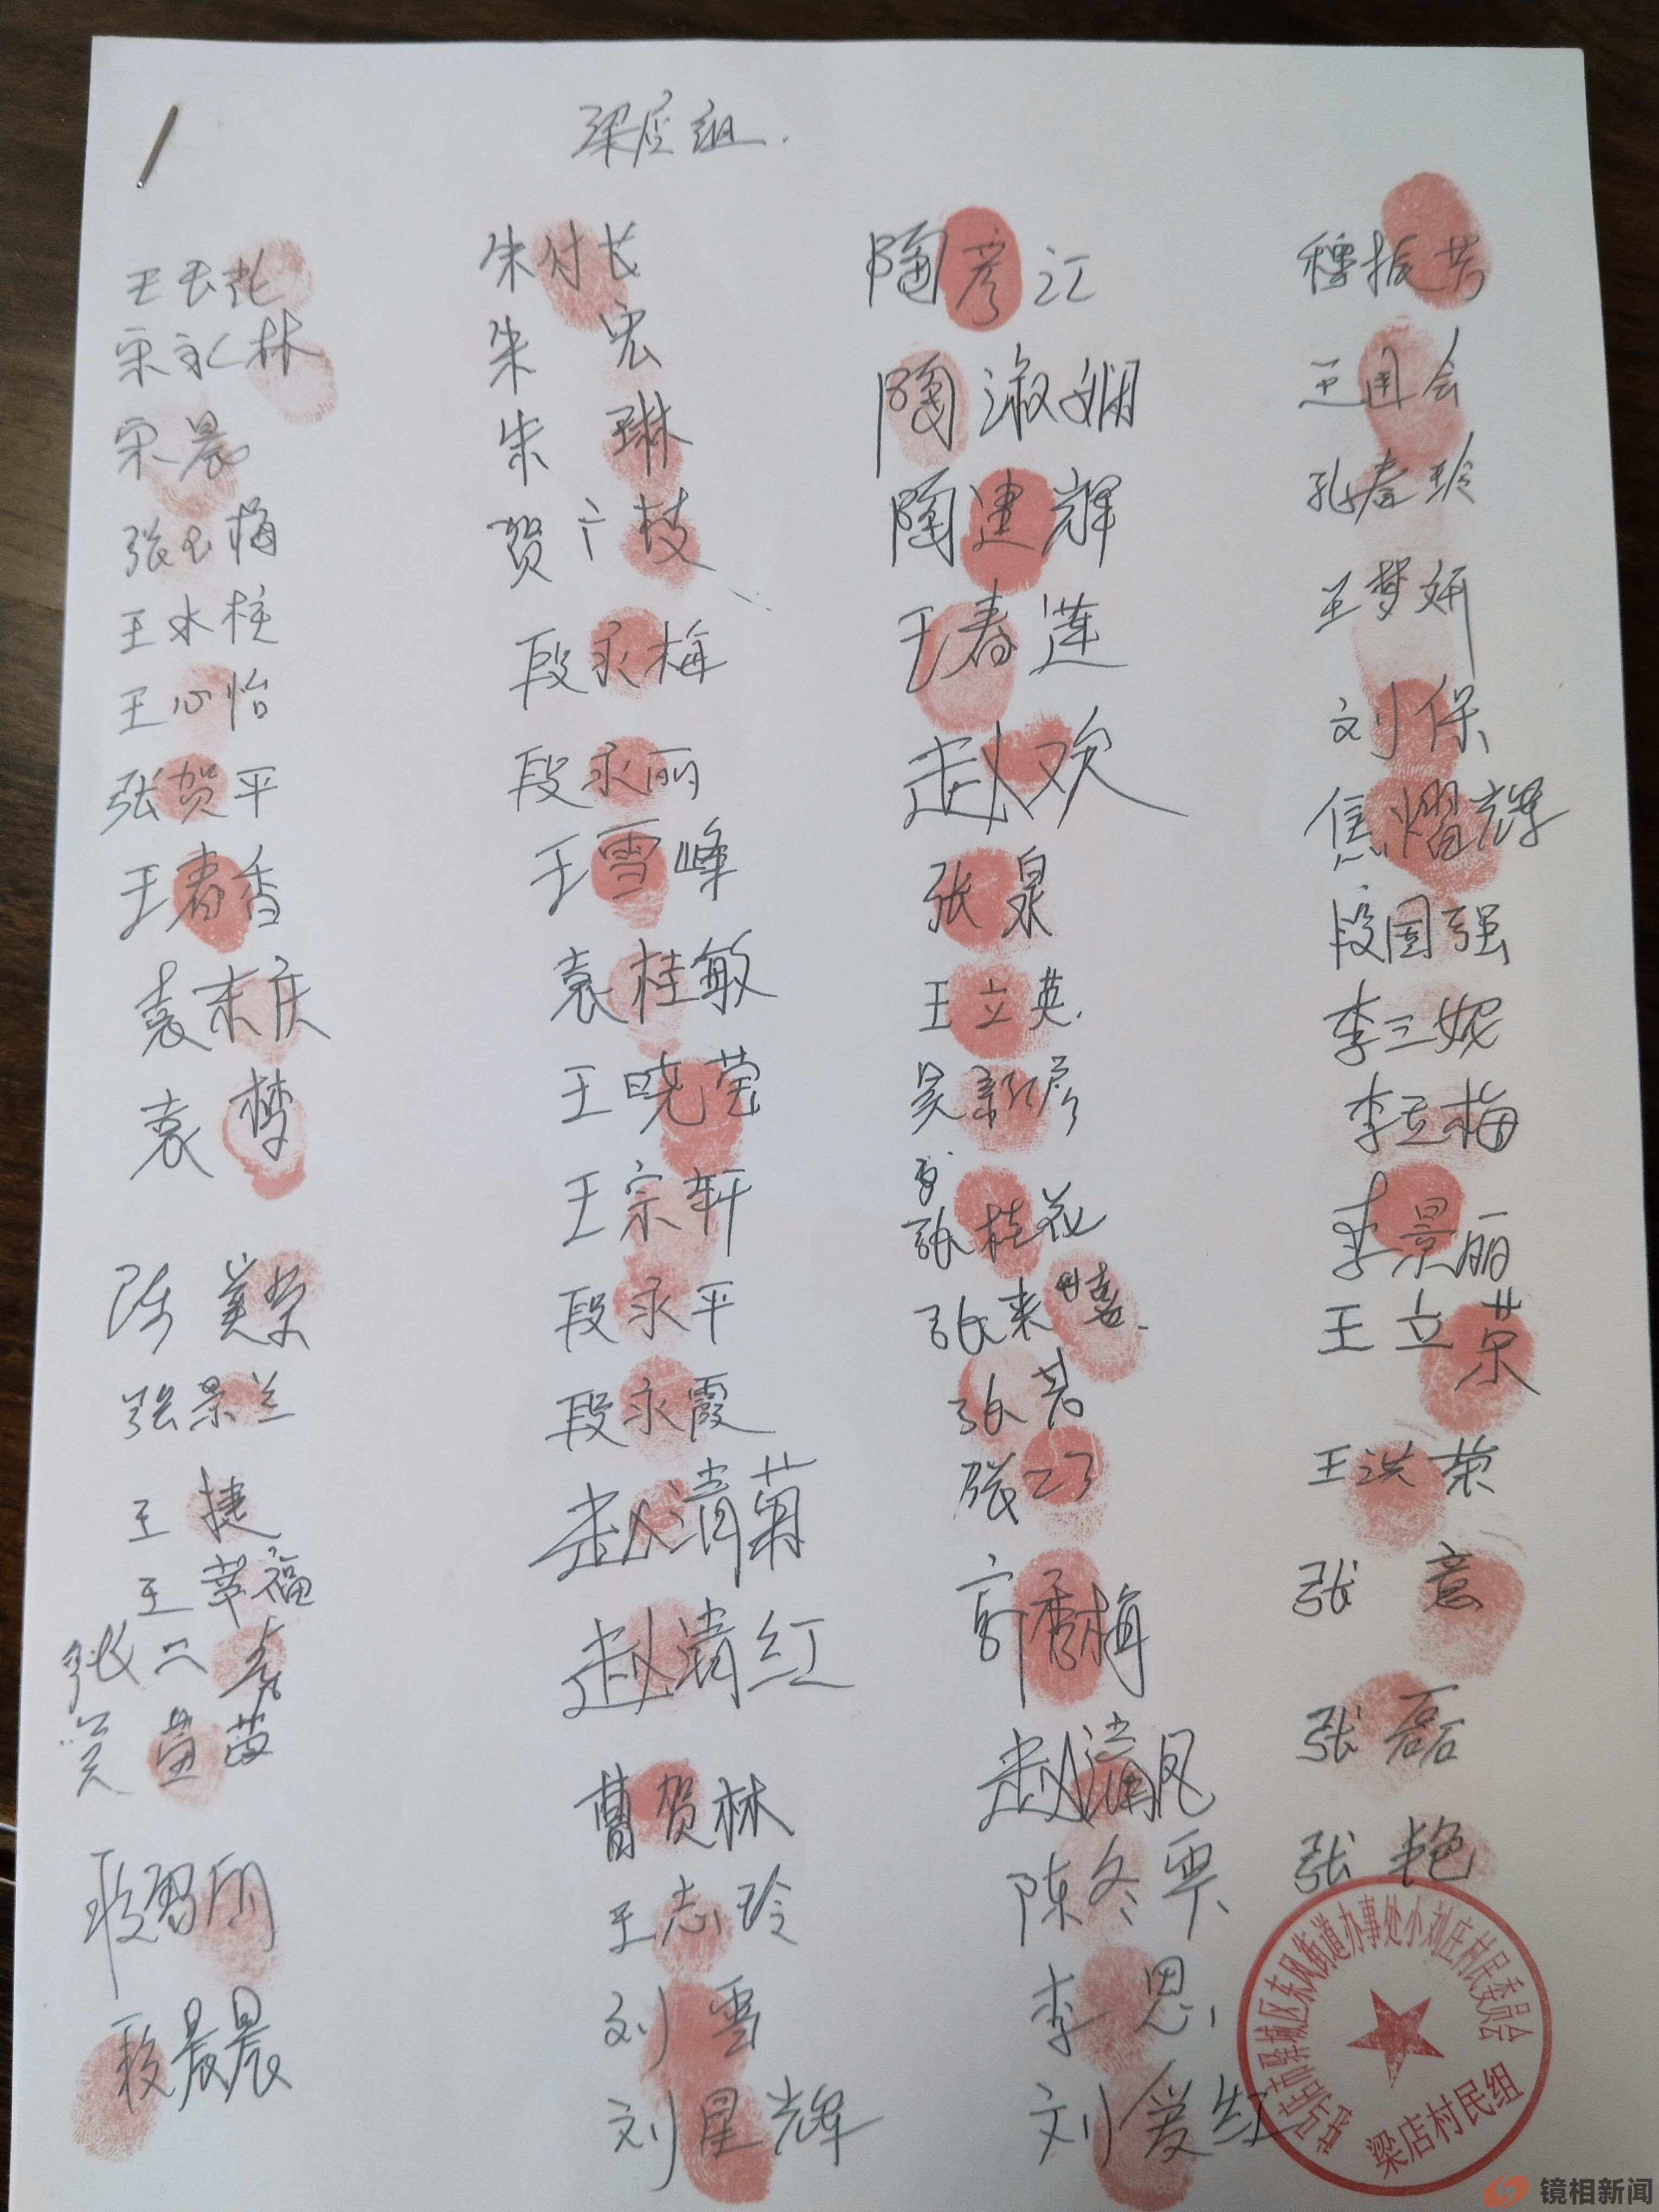 梁店组.
王长花
宋永林
宋晨
张玉梅
王水柱
王心怡
张贺平
王春香
袁来庆
袁梦
陈美荣
张景兰
王捷
王幸福
张
苗苗
晨晨
朱付长
朱宏
朱琳
贺广枝
段永梅
段永丽
王雪峰
袁桂敏
王晓莹
王宗轩
段永平
段永霞
赵清菊
赵清红
曹贺林
王志玲
刘雲
刘星辉
陶彦江
陶淑娴
陶建辉
王春莲
赵欢
张泉
王立英.
吴新彦
张桂花
张来喜.
张若
张
郭秀梅
赵清凤
陈冬栗
李恩
刘爱红
穆振芳
王国会
孔春玲
王梦妍
刘保
焦熠辉
段国强
李三妮
李玉梅
李景丽
王立荣
王洪荣
张意
张磊
张艳
开封市禹王台区
东风街道办事处小刘庄村民委员会
梁店村民组
镜相新闻